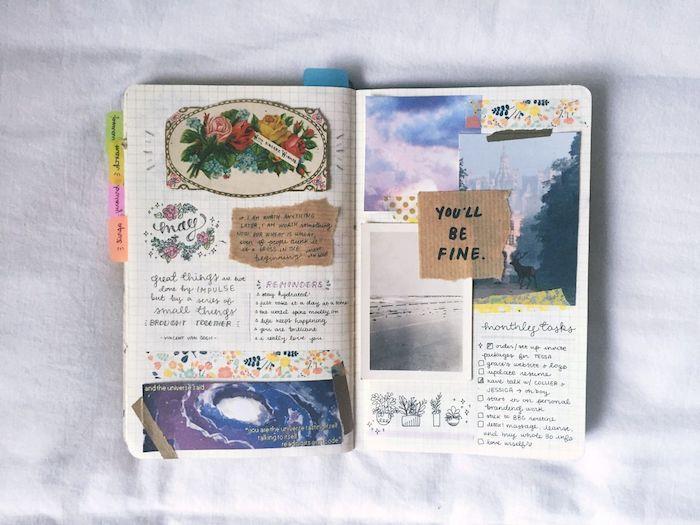 may
I AM WORTH ANYTHING
LATER, I AM WORTH something
NOW. FOR WHEAT IS WHEAT,
even if people think it
is a GRASS IN THE
beginning
great things are not
done by IMPULSE
but by a series of
small things
BROUGHT TOGETHER
- VINCENT VAN GOGH -
REMINDERS
stay hydrated
just take it a day at a time
the world spins madly on
life keeps happening
you are brilliant
i really love you
and the universe said
"you are the universe tasting itself
talking to itself
reading its own code"
YOU'LL
BE
FINE.
monthly tasks
order/set up invite
packages for TESSA
grace's website & logo
update resume
have talk w/ COLLIER &
JESSICA → oh boy
start in on personal
branding work
stick to BBG routine
detox! massage, cleanse,
and buy whole 30 info
love myself